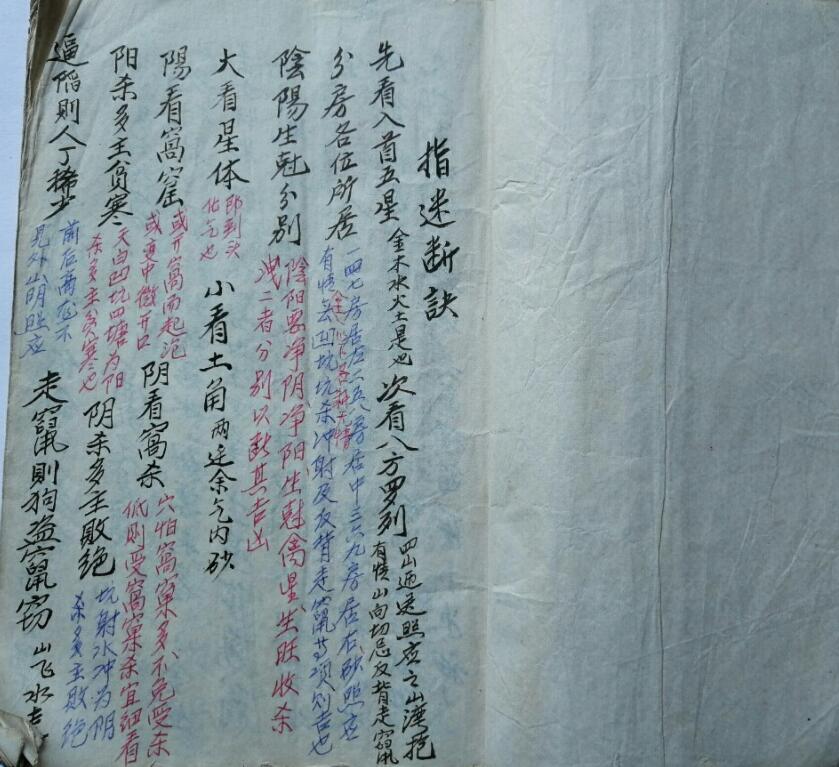 指迷断訣
先看入首五星 金木水火土是也 次看八方罗列 四山迎送照应之山湾抱有情山向切忌反背走竄
分房各位所居 一四七房居左二五八房居中三六九房居右砂照应有情无凹坑坑杀冲射及反背走竄等项则吉也
陰陽生尅分别 陰阳要净阴净阳生尅
洩二者分别以断其吉凶 星生旺收杀
大看星体 即到头化气也 小看土角 两边余气内砂
陽看窩窟 或开窩而起泡或变中微开口 阴看窩杀 穴怕窩窠多不免受杀低则受窩窠杀宜细看
阳杀多主貧寒 天白凹坑四塘为阳杀多主貧寒也 阴杀多主败绝 坑射水冲为阴杀多主败绝
逼陷則人丁稀少 前后两龙不見外山阴照应 走竄則狗盗竄窃 山飞水走